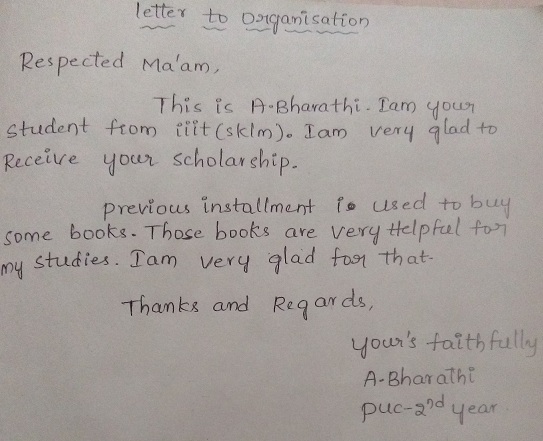 letter to Organisation
Respected Ma'am,
This is A-Bharathi. Iam your
student from iiit(sklm). Iam very glad to
Receive your scholarship.
previous installment is used to buy
some books. Those books are very Helpful for
my studies. Iam very glad for that.
Thanks and Regards,
your's faithfully
A-Bharathi
puc-2nd year